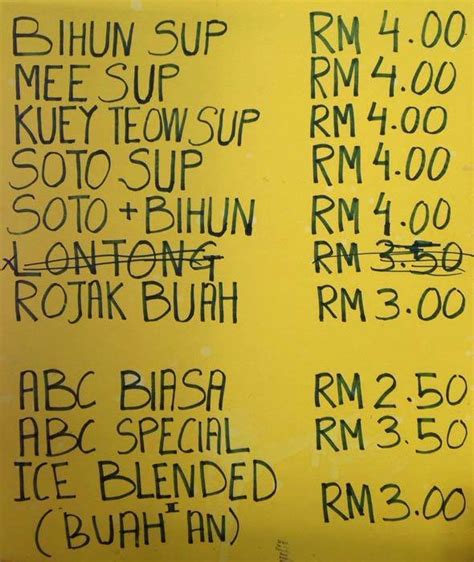 BIHUN SUP RM 4.00
MEE SUP RM 4.00
KUEY TEOW SUP RM 4.00
SOTO SUP RM 4.00
SOTO + BIHUN RM 4.00
x LONTONG RM 3.50
ROJAK BUAH RM 3.00
ABC BIASA RM 2.50
ABC SPECIAL RM 3.50
ICE BLENDED
(BUAH II AN) RM 3.00